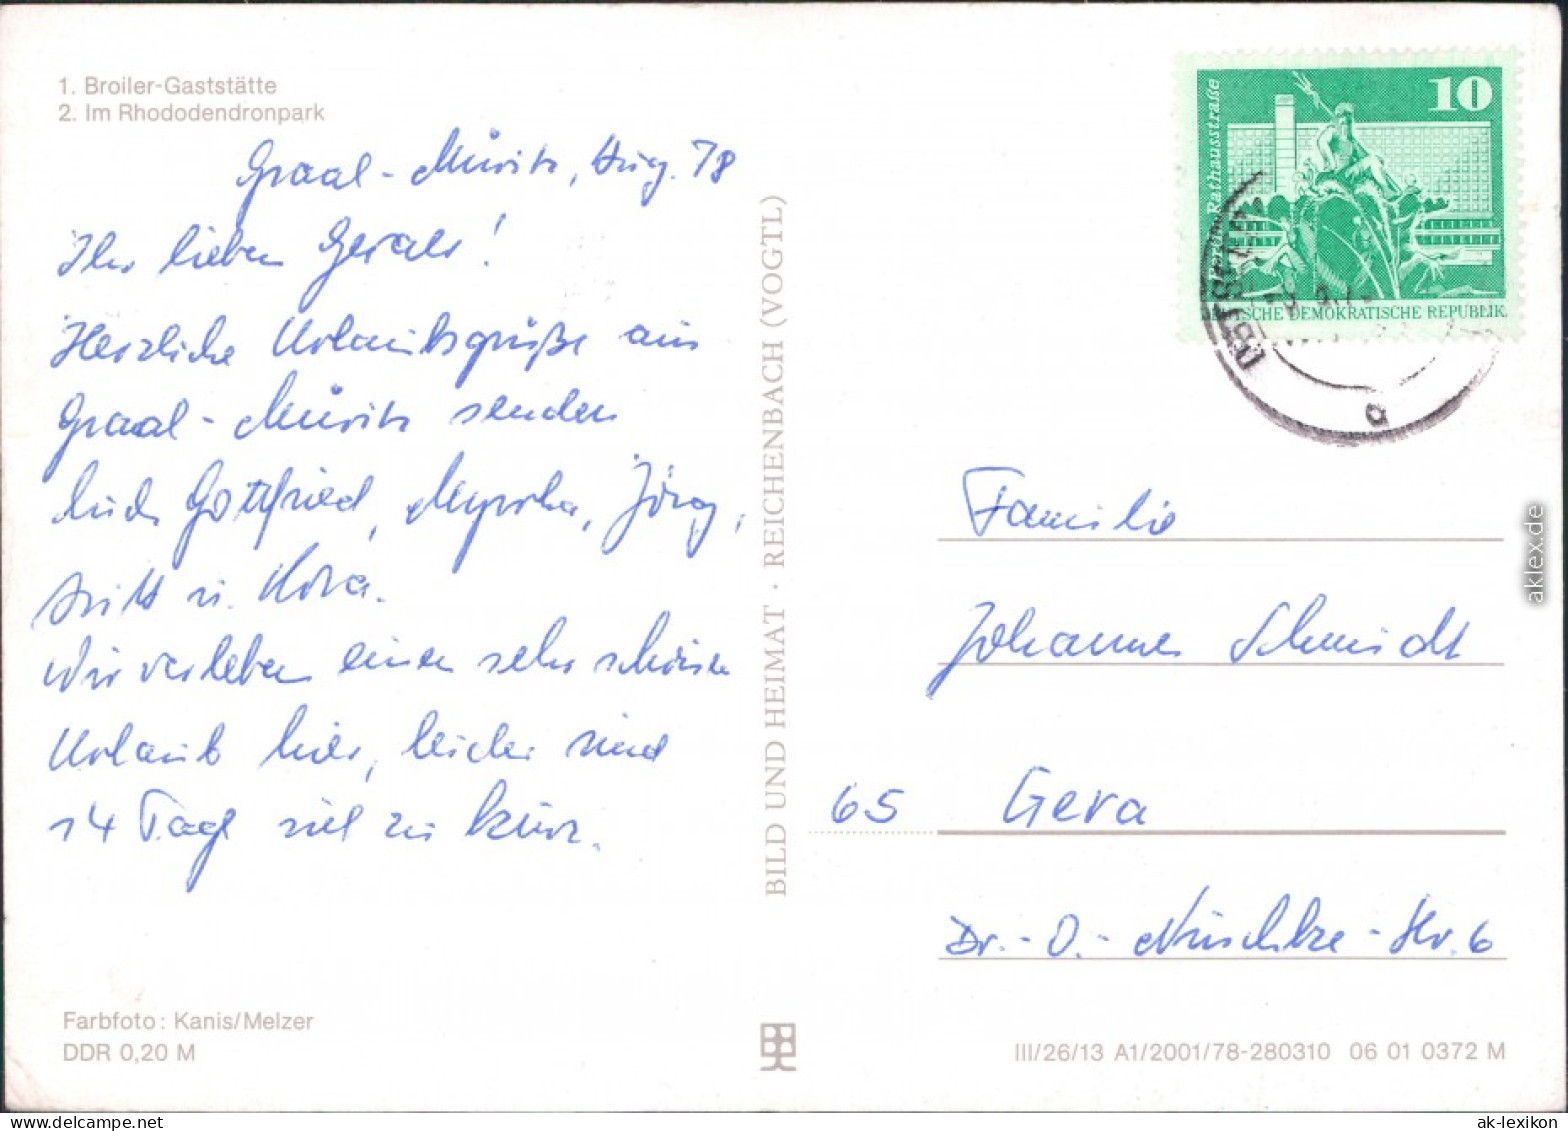 1. Broiler-Gaststätte
2. Im Rhododendronpark
Graal-Müritz, Aug. 78
Ihr lieben Geraer!
Herzliche Urlaubsgrüße aus
Graal-Müritz senden
Euch Gottfried, Jörg,
u.
Wir verleben einen sehr schönen
Urlaub hier, leider sind
14 Tage viel zu kurz.
Farbfoto: Kanis/Melzer
DDR 0,20 M
BILD UND HEIMAT · REICHENBACH (VOGTL)
10
Rathausstraße
DEMOKRATISCHE REPUBLIK
Familie
Johannes Schmidt
65 Gera
Dr.-O.-Nuschke-Str. 6
III/26/13 A1/2001/78-280310 06 01 0372 M
aklex.de
ak-lexikon